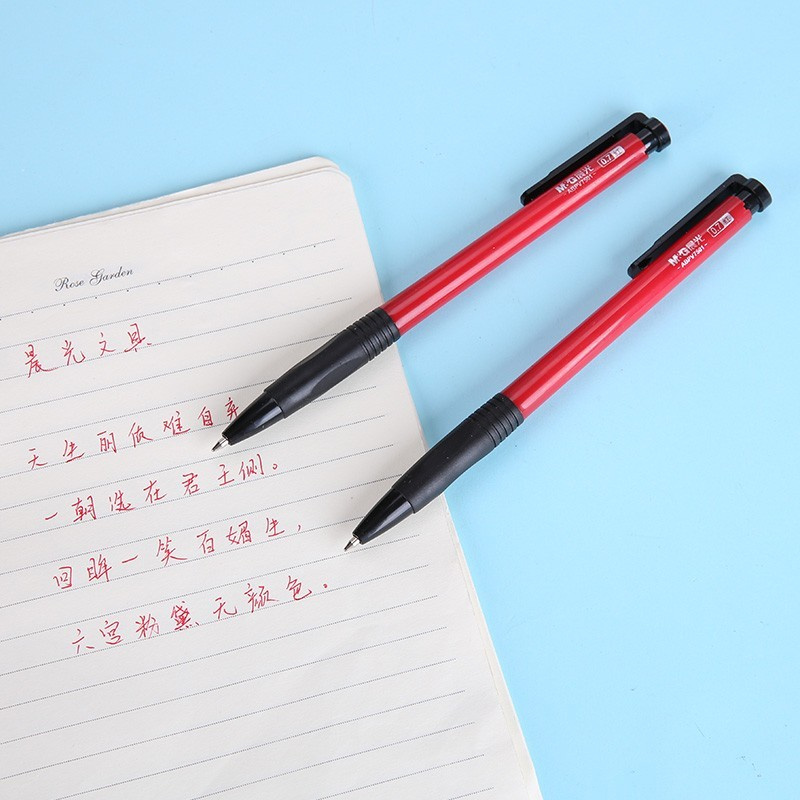 Rose Garden
晨光文具
天生丽质难自弃
一朝选在君王侧。
回眸一笑百媚生,
六宫粉黛无颜色。
M&G晨光 0.7
ABPV7501
M&G晨光 0.7
ABPV7501